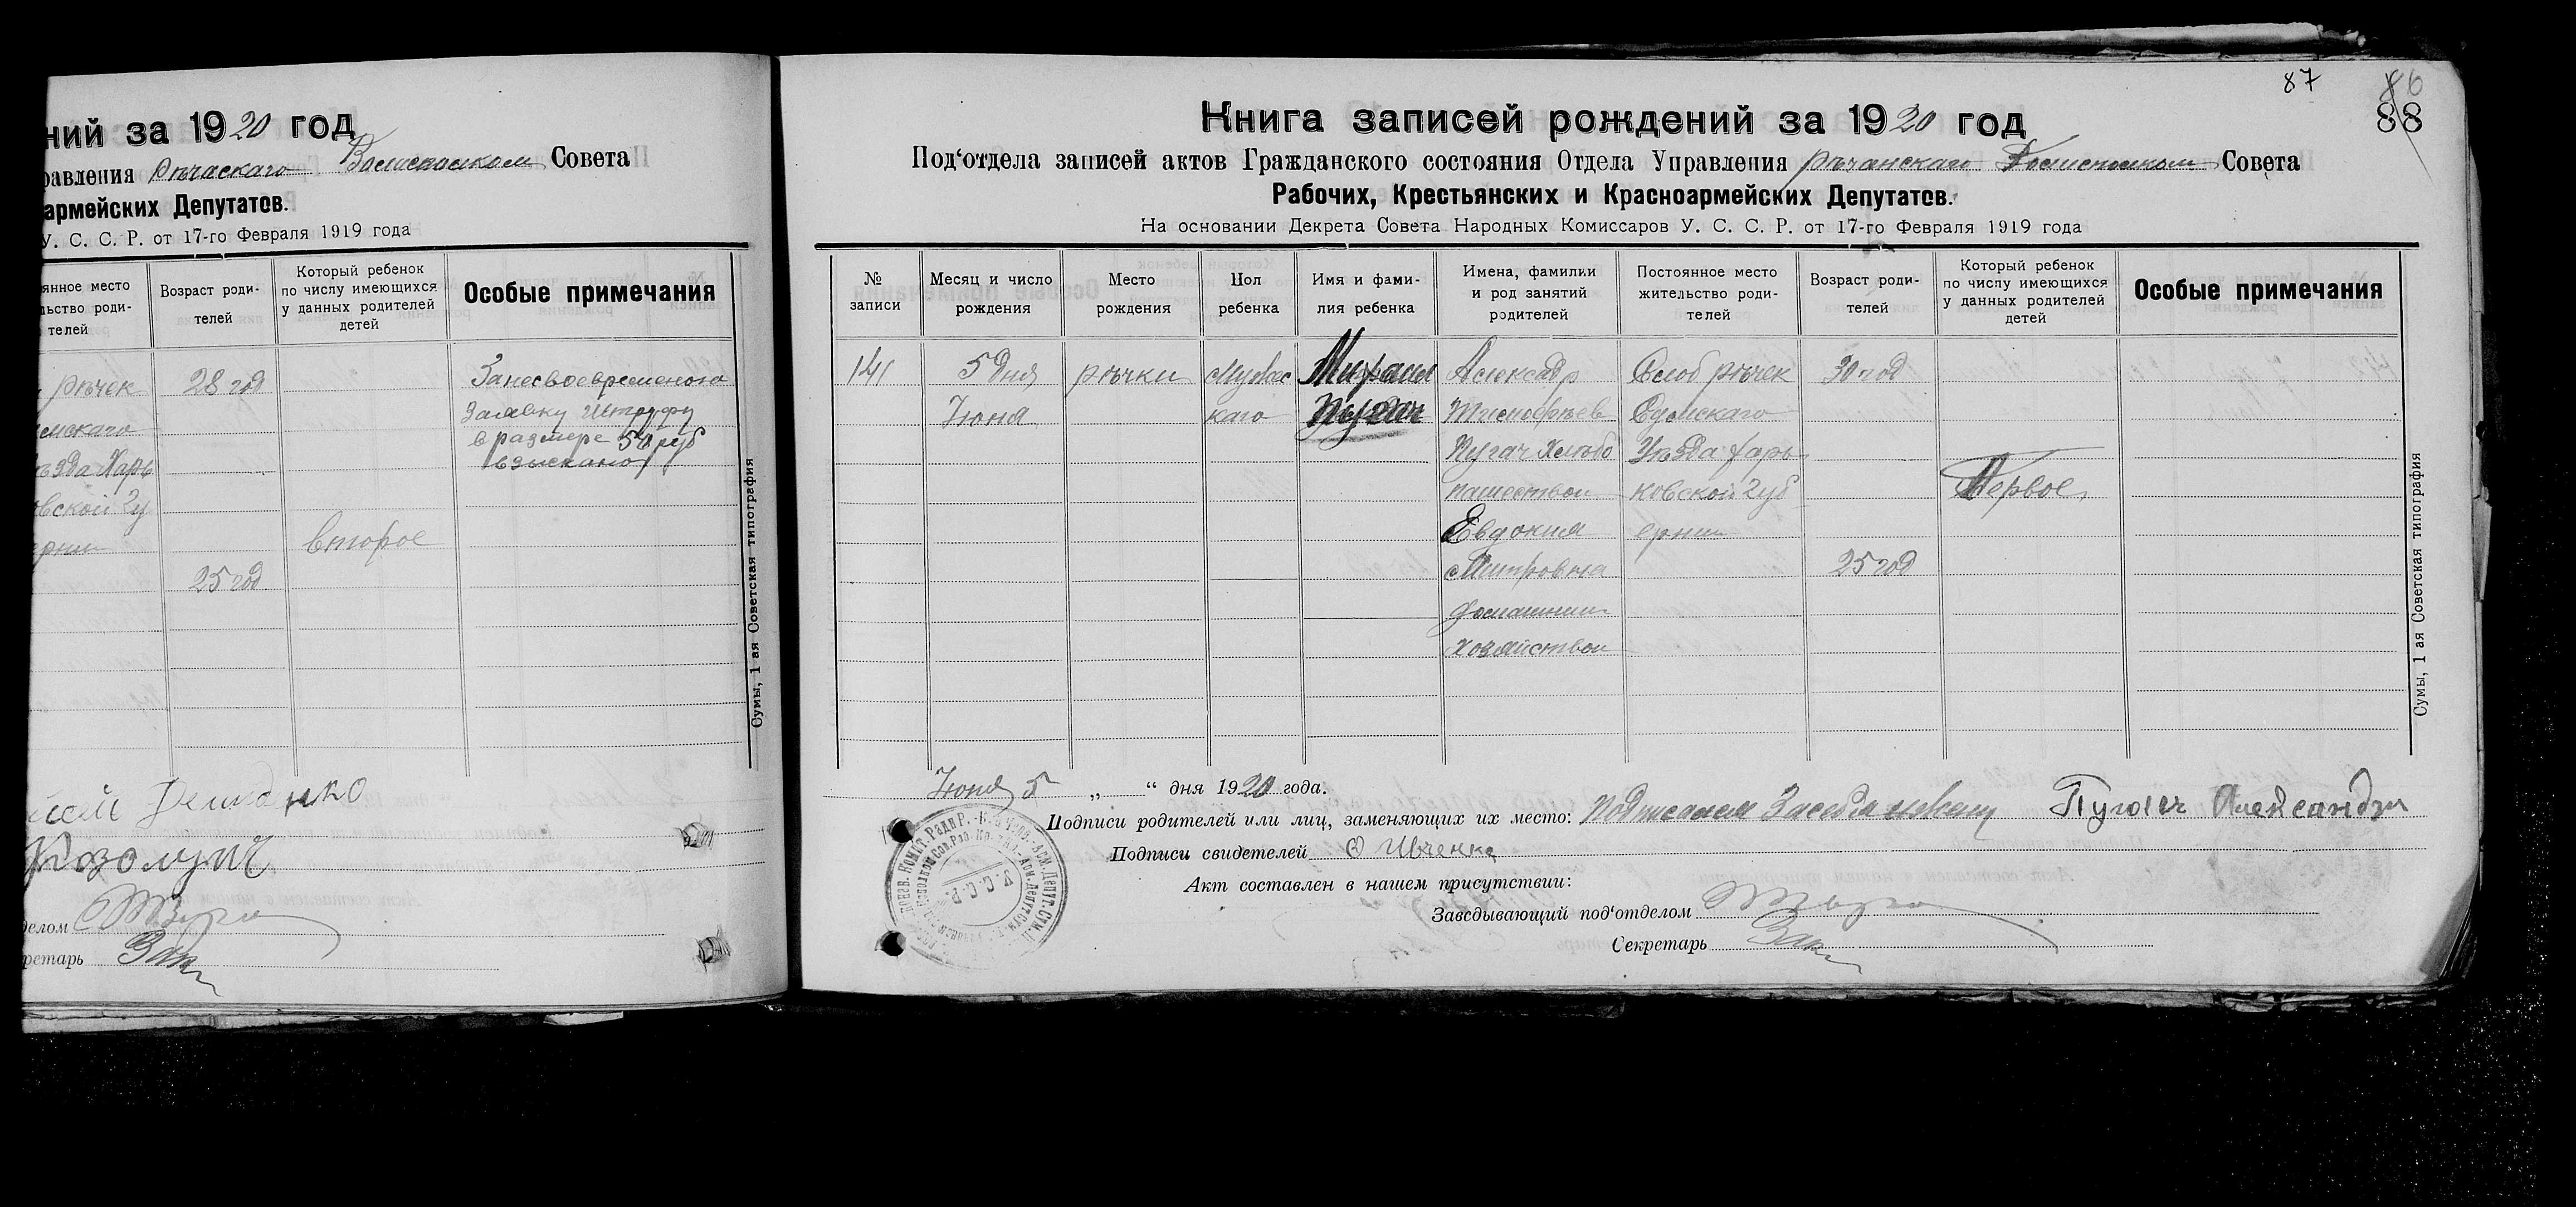 ний за 1920 год
равления Рѣчаскаго Волисполком Совета
армейских Депутатов.
У. С. С. Р. от 17-го Февраля 1919 года
янное место
льство роди-
телей
Возраст роди-
телей
Который ребенок
по числу имеющихся
у данных родителей
детей
Особые примечания
Рѣчек
28 год
умскаго
ѣзда Харь
овской Гу
ернии
второе
25 год
Занесвоевременога
заявку Штрафу
в размере 50 руб
взыскано
Сумы, 1 ая Советская типография
Козолупъ
делом
ретарь
87
86
88
Книга записей рождений за 1920 год
Под‘отдела записей актов Гражданского состояния Отдела Управления Рѣчанскаго Волисполком Совета
Рабочих, Крестьянских и Красноармейских Депутатов.
На основании Декрета Совета Народных Комиссаров У. С. С. Р. от 17-го Февраля 1919 года
№
записи
Месяц и число
рождения
Место
рождения
Пол
ребенка
Имя и фами-
лия ребенка
Имена, фамилии
и род занятий
родителей
Постоянное место
жительство роди-
телей
Возраст роди-
телей
Который ребенок
по числу имеющихся
у данных родителей
детей
Особые примечания
141
5 дня
Июня
Рѣчки
Мужес
каго
Михаил
Пугач
Александр
Тимофѣев
Пугач Хлѣбо
пашеством
Евдокия
Митровна
домашним
хозяйством
Слоб Рѣчек
Сумскаго
Уѣзда Харь
ковской Губ
ернии
30 год
25 год
Первое
Сумы, 1 ая Советская типография
Июня 5 „ “ дня 1920 года.
Подписи родителей или лиц, заменяющих их место: Пугачъ Александр
Подписи свидетелей О Ивченко
Акт составлен в нашем присутствии:
Заведывающий под‘отделом
Секретарь
У.С.С.Р.